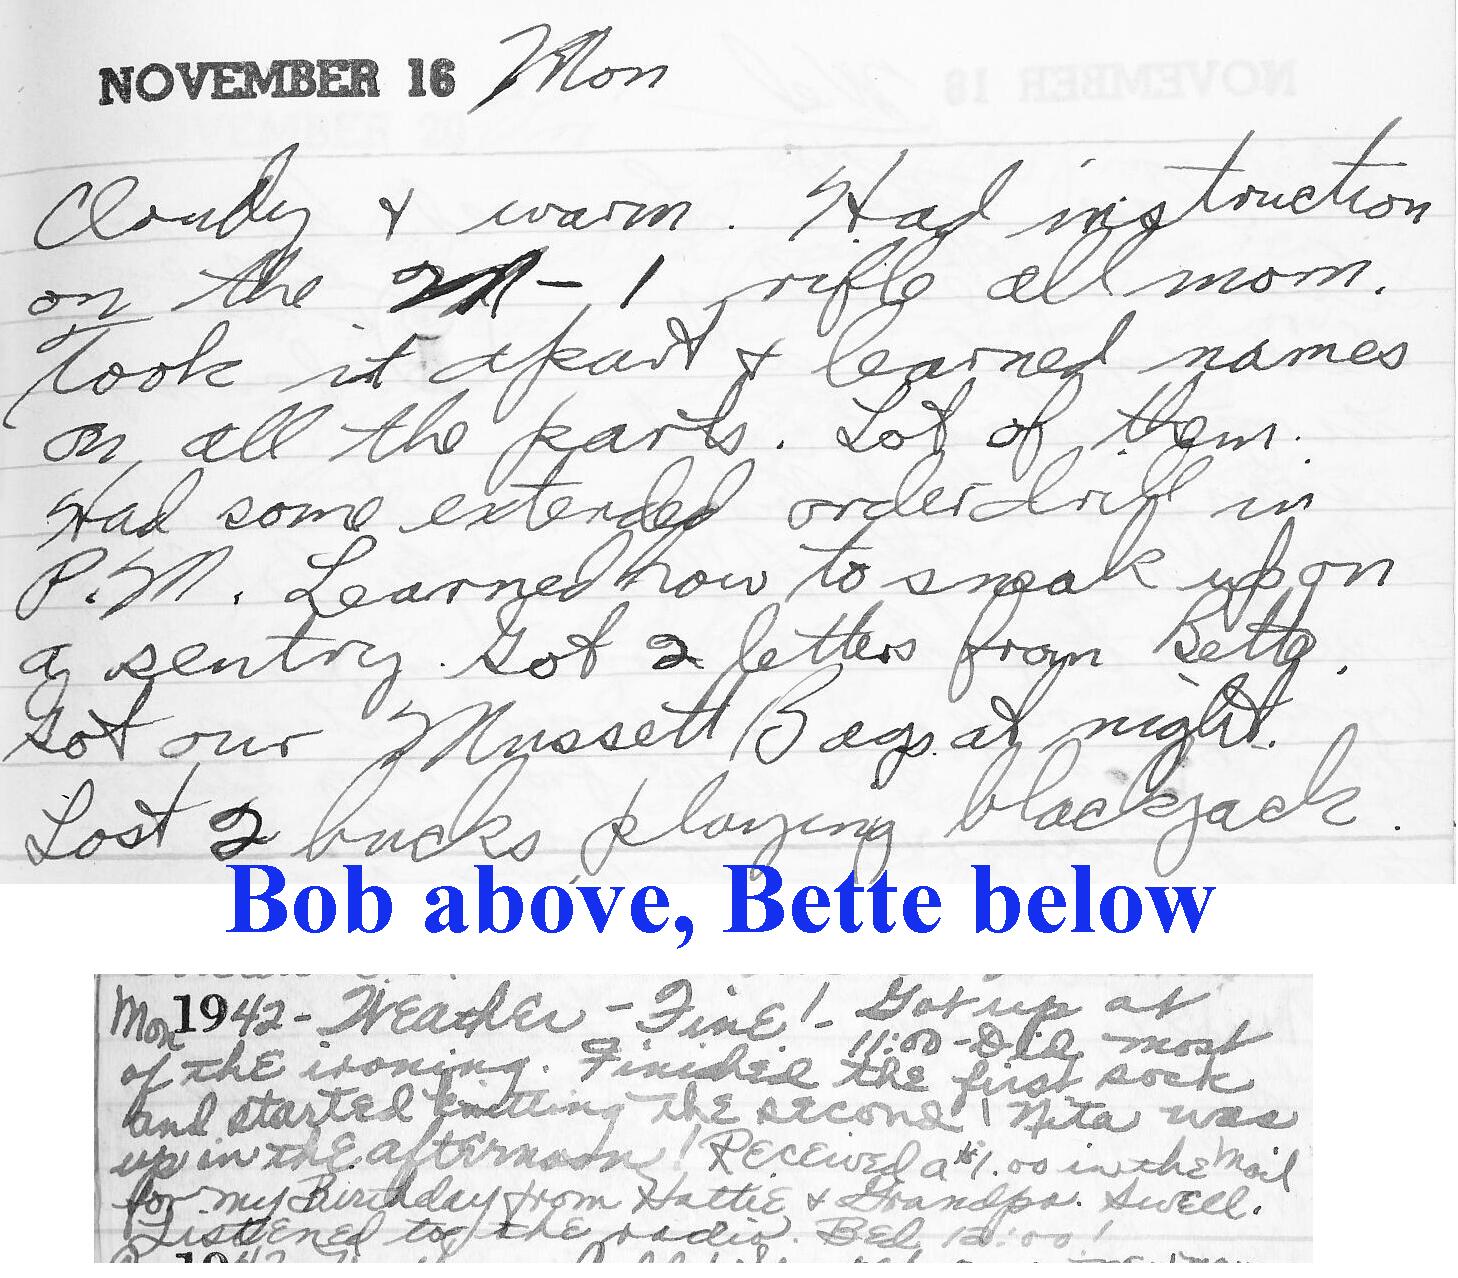 NOVEMBER 16 Mon
Cloudy & warm. Had instruction
on the M-1 rifle all morn.
Took it apart & learned names
on all the parts. Lot of them.
Had some extended order drill in
P.M. Learned how to sneak up on
a sentry. Got 2 letters from Bette.
Got our Mussett Bags at night.
Lost 2 bucks playing blackjack.
Bob above, Bette below
Mon 1942 - Weather - Fine! - Got up at
11:00 - Did most
of the ironing. Finished the first sock
and started knitting the second! Nita was
up in the afternoon! Received a $1.00 in the mail
for my Birthday from Hattie & Grandpa. Swell.
Listened to the radio. Bed 12:00!
1942